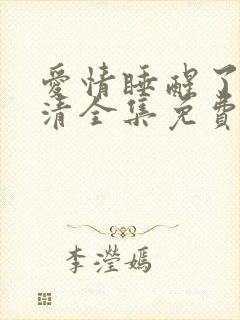 愛情睡醒了
清全集免費
李瀅嫣